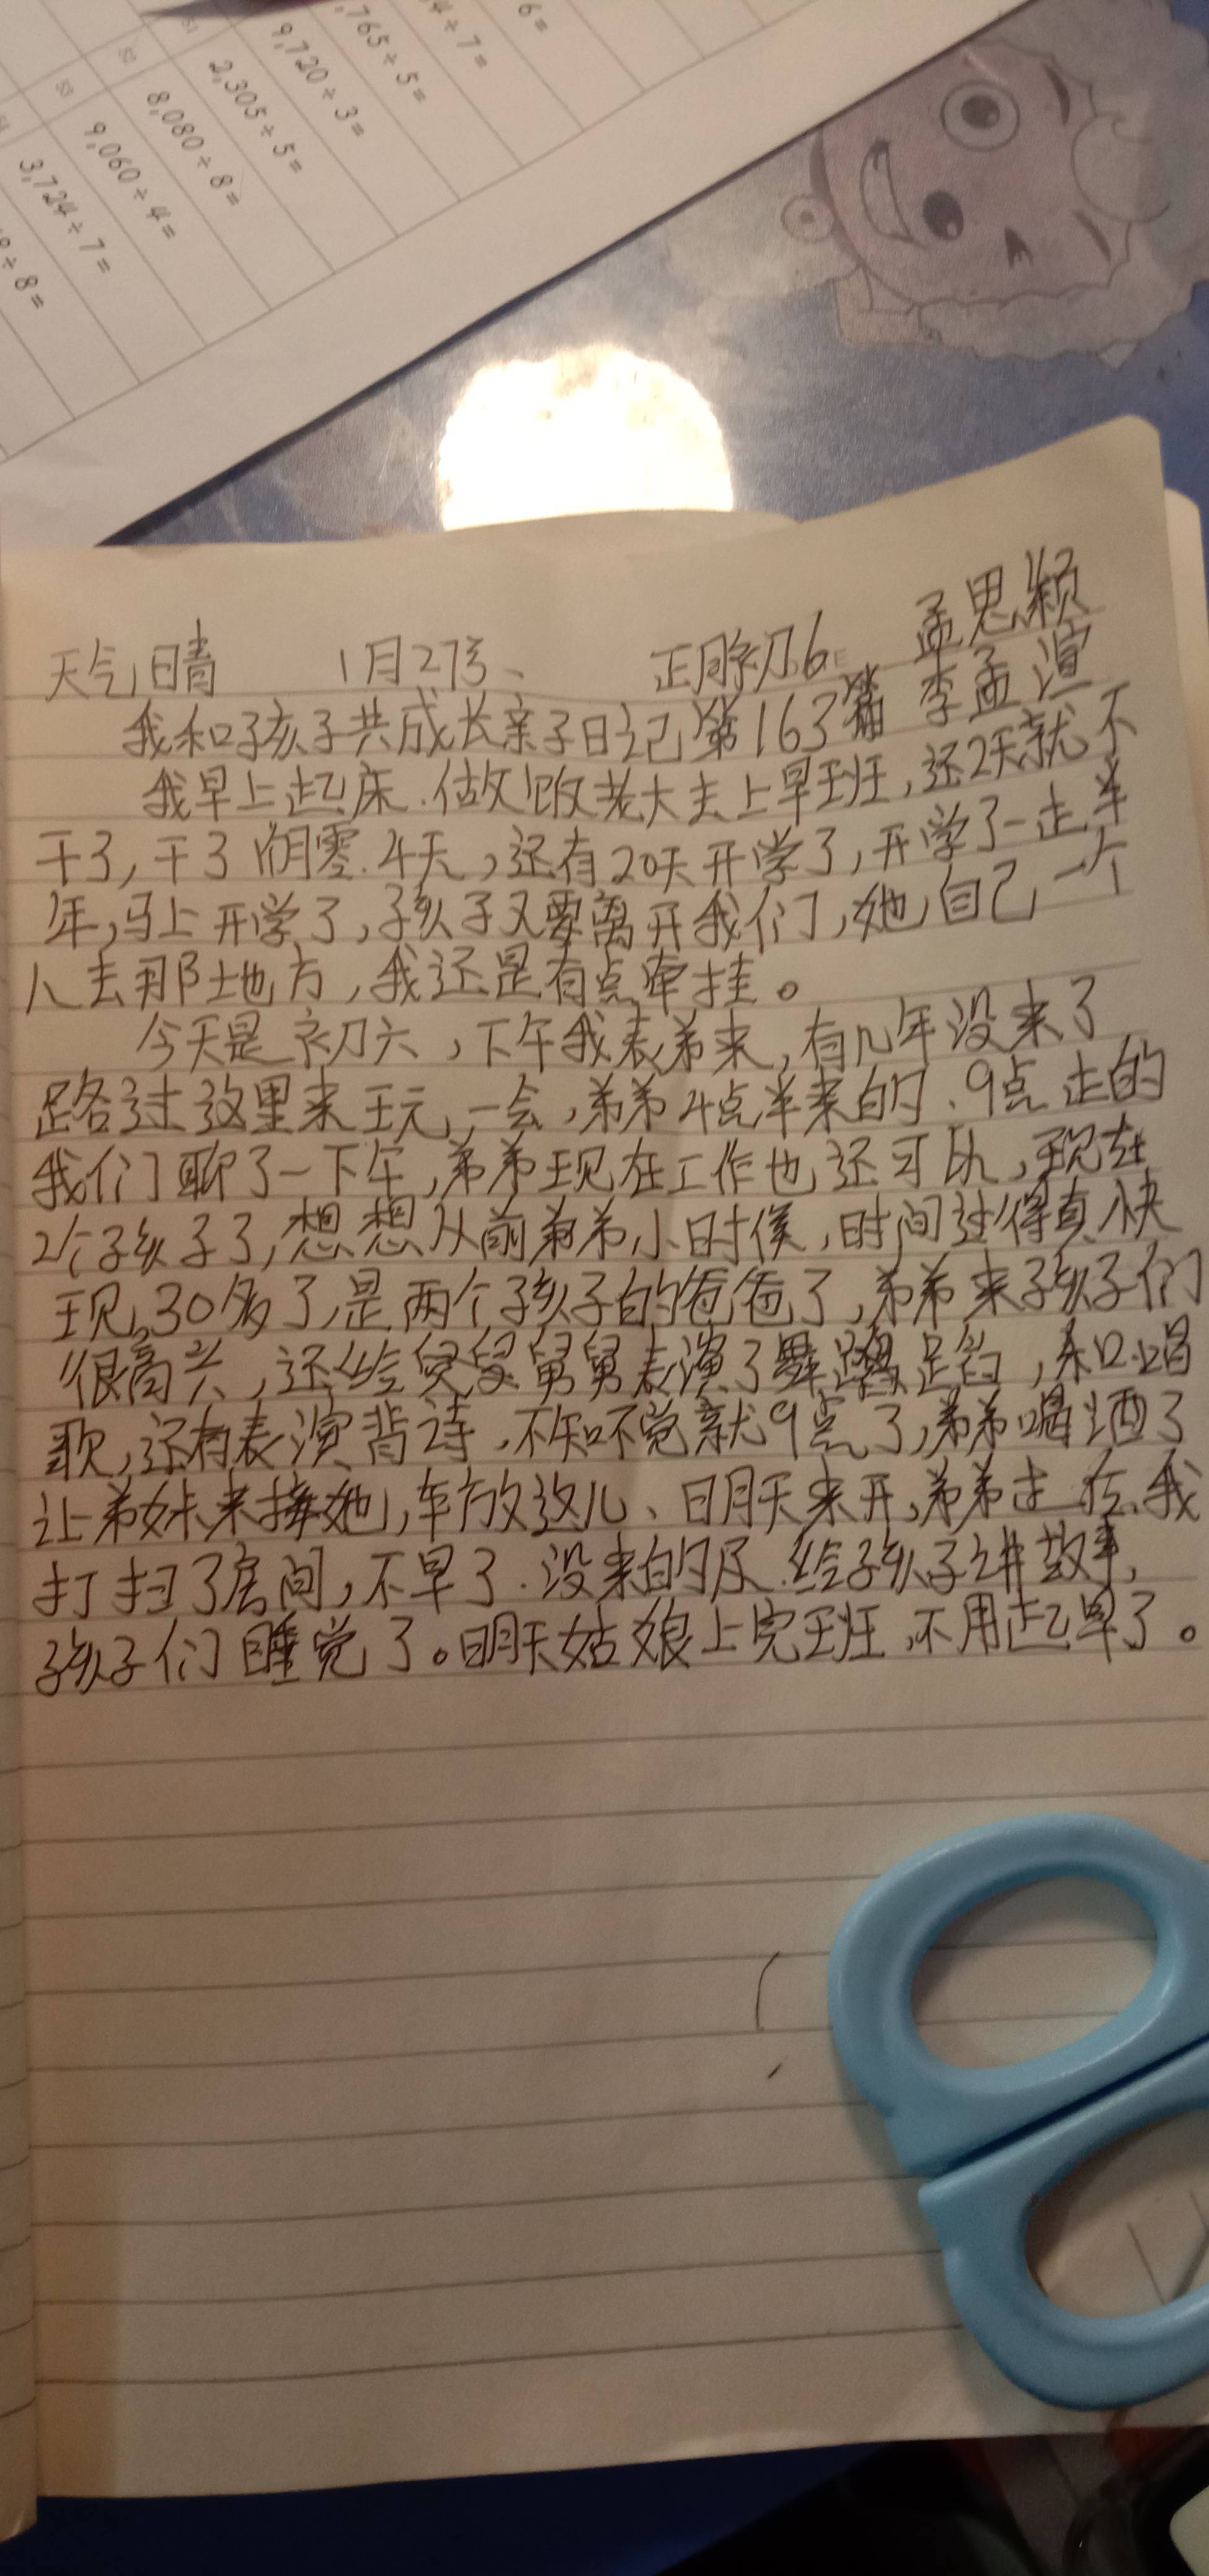 6=
4÷7=
765÷5=
9,720÷3=
51
2,305÷5=
52
8,080÷8=
53
9,060÷4=
3,724÷7=
÷8=
孟思颖
天气晴 1月27号、 正月初6 李孟渲
我和孩子共成长亲子日记第163篇
我早上起床.做饭老大去上早班,还2天就不
干了,干了 零.4天,还有20天开学了,开学了一走半
年,马上开学了,孩子又要离开我们,她自己一个
人去那地方,我还是有点牵挂。
今天是初六,下午我表弟来,有几年没来了
路过这里来玩一会,弟弟4点半来的、9点走的
我们聊了一下午,弟弟现在工作也还可以,现在
2个孩子了,想想从前弟弟小时候,时间过得真快
现30多了,是两个孩子的爸爸了,弟弟来孩子们
很高兴,还给 舅舅表演了舞蹈,和唱
歌,还有表演背诗,不知不觉就9点了,弟弟喝酒了
让弟妹来接她,车放这儿、明天来开,弟弟走后,我
打扫了房间,不早了.没来的及.给孩子讲故事,
孩子们睡觉了。明天姑娘上完班,不用起早了。